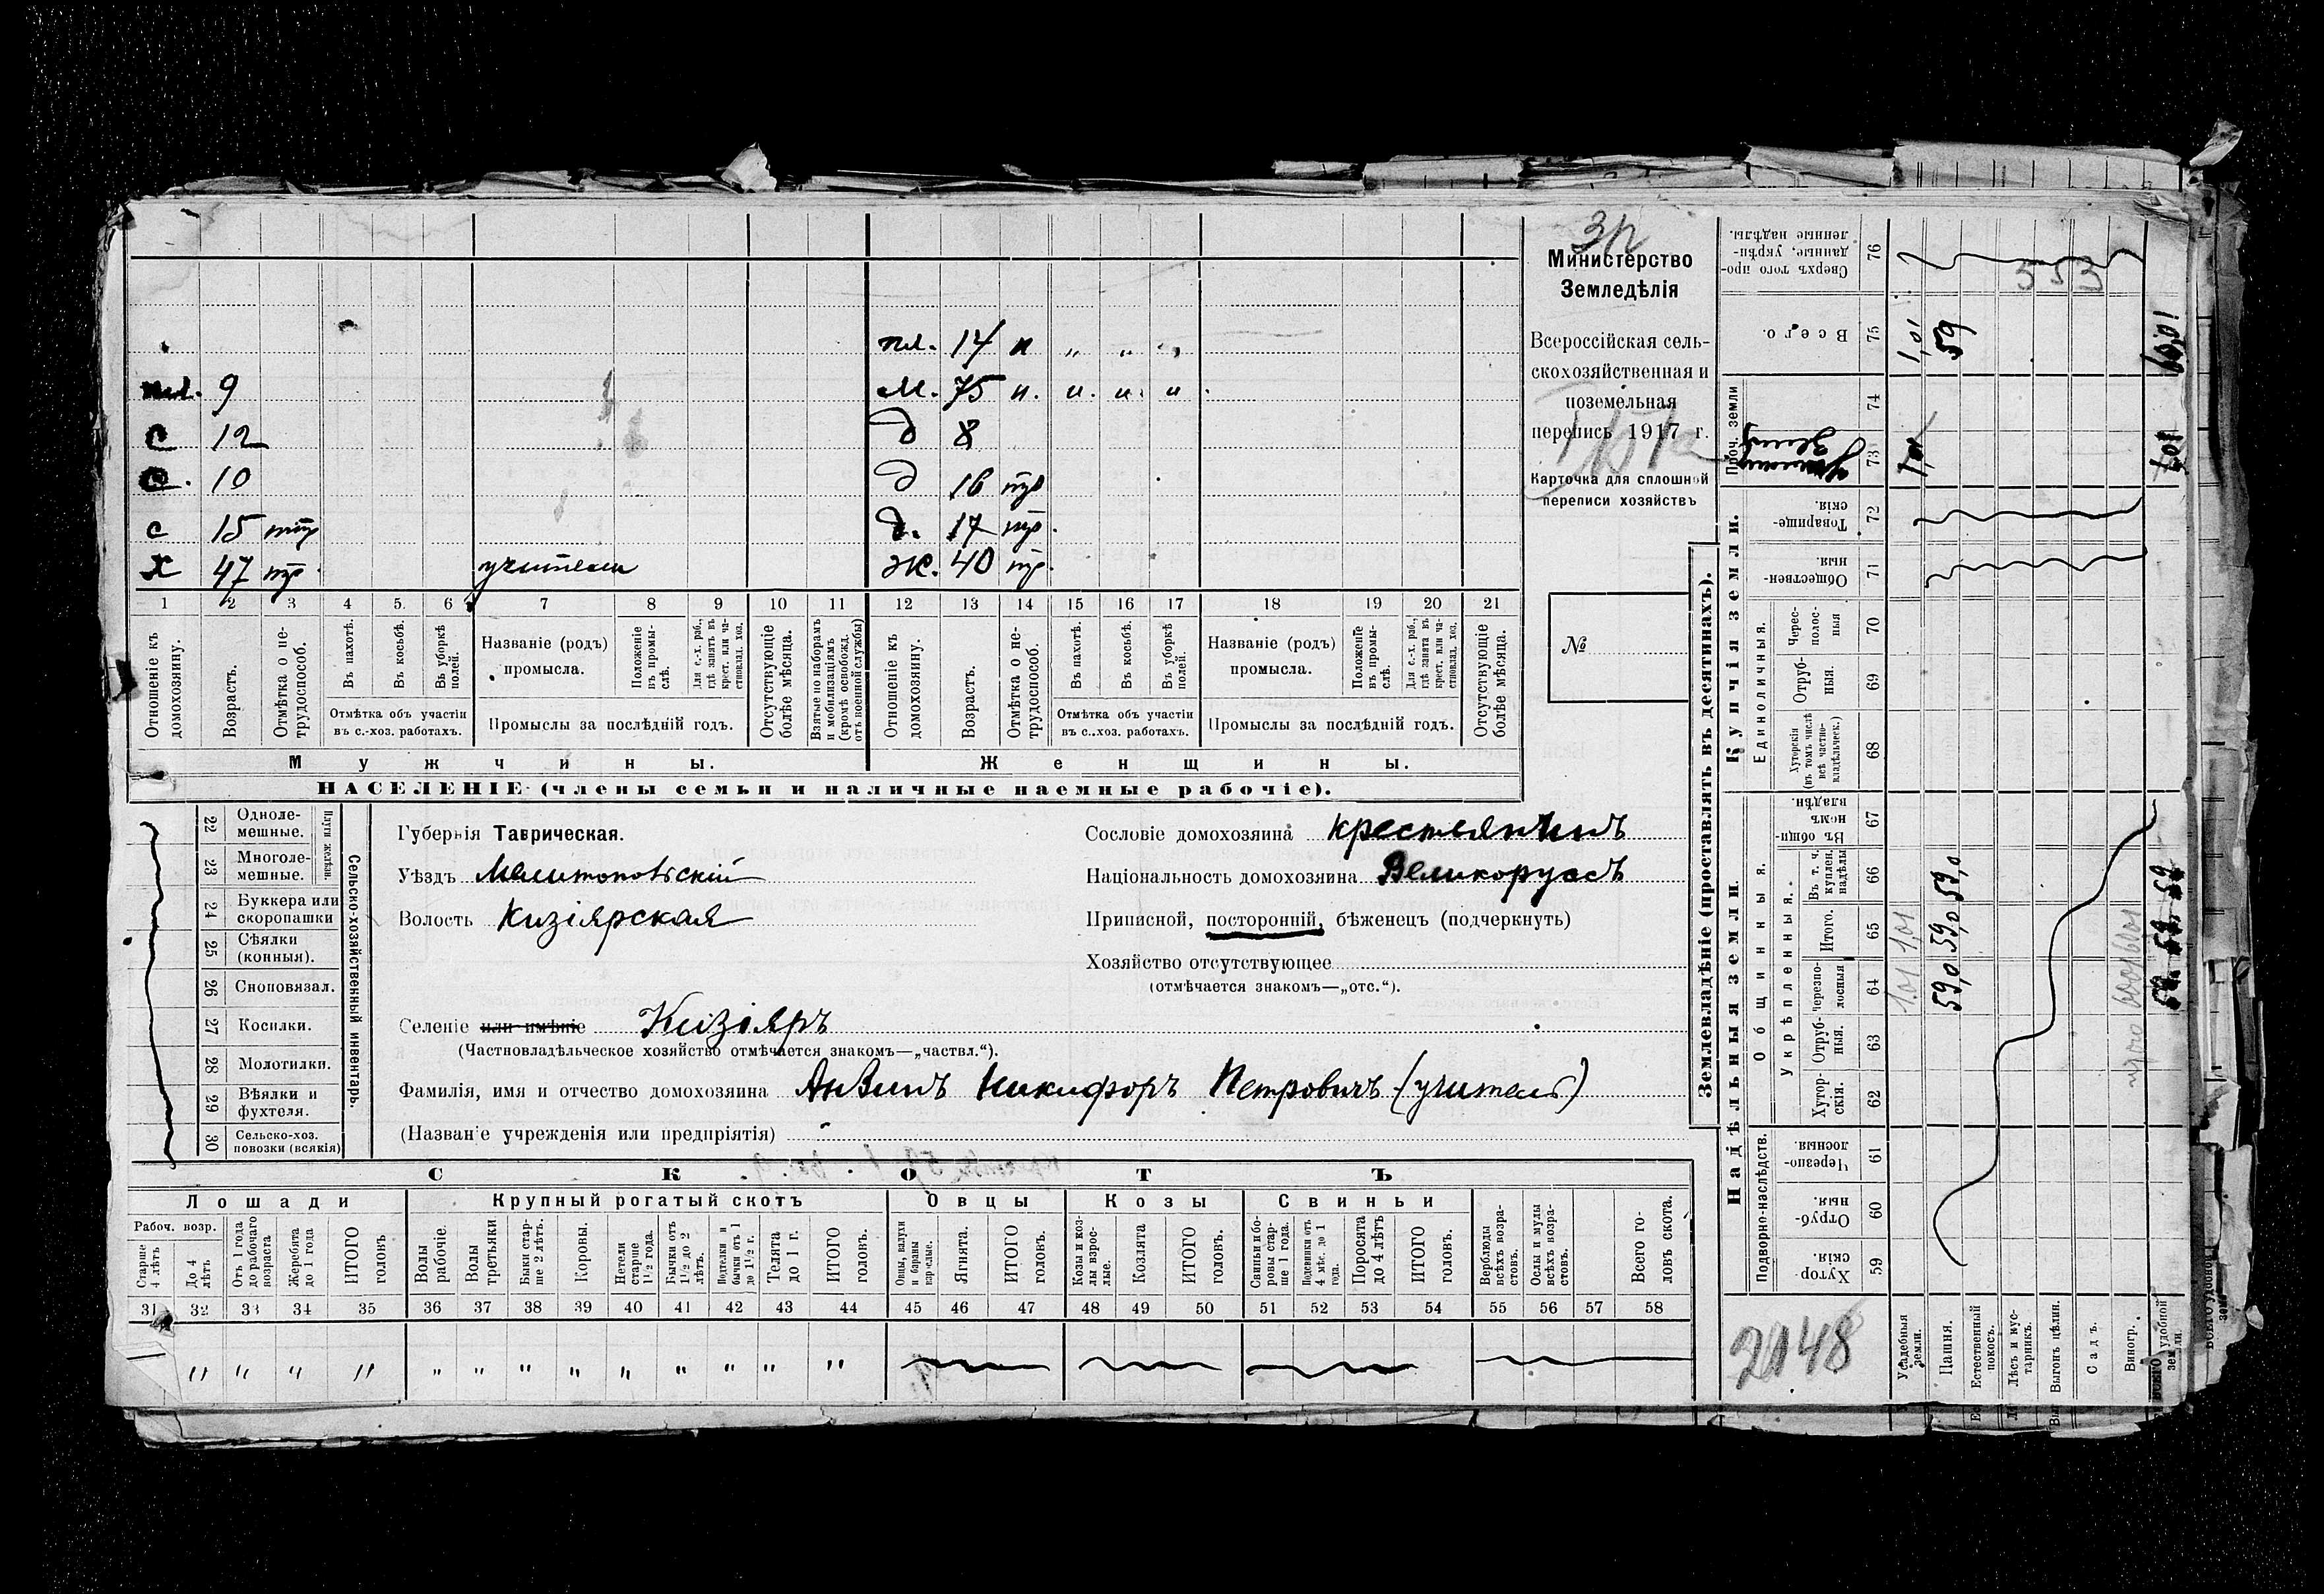 Зп
Министерство
Земледѣлія
Всероссійская сель-
скохозяйственная и
поземельная
перепись 1917 г.
Карточка для сплошной
переписи хозяйствъ
№
пл. 14 н „ „ „
пл. 9 м. 75 н. н. н. н
с 12 д 8
с. 10 д 16 пр
с 15 пр д. 17 пр.
х 47 пр. учитель ж. 40 пр.
1 2 3 4 5 6 7 8 9 10 11 12 13 14 15 16 17 18 19 20 21
Отношеніе къ домохозяину.
Возрастъ.
Отмѣтка о не-трудоспособ.
Въ пахотѣ.
Въ косьбѣ.
Въ уборкѣ полей.
Отмѣтка объ участіи въ с.-хоз. работахъ.
Названіе (родъ) промысла.
Положеніе въ промы-слѣ.
Для с.-х. раб., гдѣ занятъ въ крест. или ча-стновлад. хоз.
Промыслы за послѣдній годъ.
Отсутствующіе болѣе мѣсяца.
Взятые по наборамъ и мобилизаціямъ (кромѣ освобожд. отъ военной службы)
Отношеніе къ домохозяину.
Возрастъ.
Отмѣтка о не-трудоспособ.
Въ пахотѣ.
Въ косьбѣ.
Въ уборкѣ полей.
Отмѣтка объ участіи въ с.-хоз. работахъ.
Названіе (родъ) промысла.
Положеніе въ промы-слѣ.
Для с.-х. раб., гдѣ занятъ въ крест. или ча-стновлад. хоз.
Промыслы за послѣдній годъ.
Отсутствующіе болѣе мѣсяца.
Мужчины. Женщины.
НАСЕЛЕНІЕ (члены семьи и наличные наемные рабочіе).
Сельско-хозяйственный инвентарь.
Плуги желѣзн.
22 Одноле-мешные.
23 Многоле-мешные.
24 Буккера или скоропашки
25 Сѣялки (конныя).
26 Сноповязал.
27 Косилки.
28 Молотилки.
29 Вѣялки и фухтеля.
30 Сельско-хоз. повозки (всякія)
Губернія Таврическая.
Уѣздъ Мелитопольскій
Волость Кизіярская
Сословіе домохозяина крестьянинъ
Національность домохозяина Великорусъ
Приписной, посторонній, бѣженецъ (подчеркнуть)
Хозяйство отсутствующее
(отмѣчается знакомъ—„отс.“).
Селеніе или имѣніе Кизіяръ
(Частновладѣльческое хозяйство отмѣчается знакомъ—„частвл.“).
Фамилія, имя и отчество домохозяина Анзинъ Никифоръ Петровичъ (учитель)
(Названіе учрежденія или предпріятія)
СКОТЪ
Лошади Крупный рогатый скотъ Овцы Козы Свиньи
Рабоч. возр.
Старше 4 лѣтъ
До 4 лѣтъ
Отъ 1 года до рабочаго возраста
Жеребята до 1 года
ИТОГО головъ
Волы рабочіе.
Волы третьяки
Быки стар-ше 2 лѣтъ.
Коровы.
Нетели старше 1½ года.
Бычки отъ 1½ до 2 лѣтъ.
Подтелки и бычки отъ 1 до 1½ г.
Телята до 1 г.
ИТОГО головъ.
Овцы, валухи и бараны взрослые.
Ягнята.
ИТОГО головъ.
Козы и коз-лы взрос-лые.
Козлята
ИТОГО головъ.
Свиньи и бо-ровы стар-ше 1 года.
Подсвинки отъ 4 мѣс. до 1 года.
Поросята до 4 лѣтъ
ИТОГО головъ.
Верблюды всѣхъ возра-стовъ.
Ослы и мулы всѣхъ возра-стовъ.
Всего го-ловъ скота.
31 32 33 34 35 36 37 38 39 40 41 42 43 44 45 46 47 48 49 50 51 52 53 54 55 56 57 58
„ „ „ „ „ „ „ „ „ „ „ „ „
Землевладѣніе (проставлять въ десятинахъ).
Надѣльныя земли. Купчія земли. Проч. земли
Подворно-наслѣдств.
Общинныя.
Укрѣпленныя.
Единоличныя.
59 Хутор-скія.
60 Отруб-ныя.
61 Черезпо-лосныя
62 Хутор-скія.
63 Отруб-ныя.
64 Черезпо-лосныя
65 Итого.
66 Въ т. ч. куплен. надѣлы
67 Въ общи-номъ владѣн.
68 Хуторскія (въ томъ числѣ всѣ частно-владѣльческ.)
69 Отруб-ныя.
70 Черес-полос-ныя
71 Обществен-ныя.
72 Товарище-скія.
73
74
75 Всего.
76 Сверхъ того про-данные, укрѣп-ленные надѣлы.
553
1,01 59 60,01
1,01 1,01
1,01 1,01
59,0 59,0 59,0
59 59 59
2148
Усадебныя земли.
Пашня.
Естественный покосъ.
Лѣсъ и кус-тарникъ.
Выгонъ цѣлин.
Садъ.
Виногр.
Всего удобной земли.